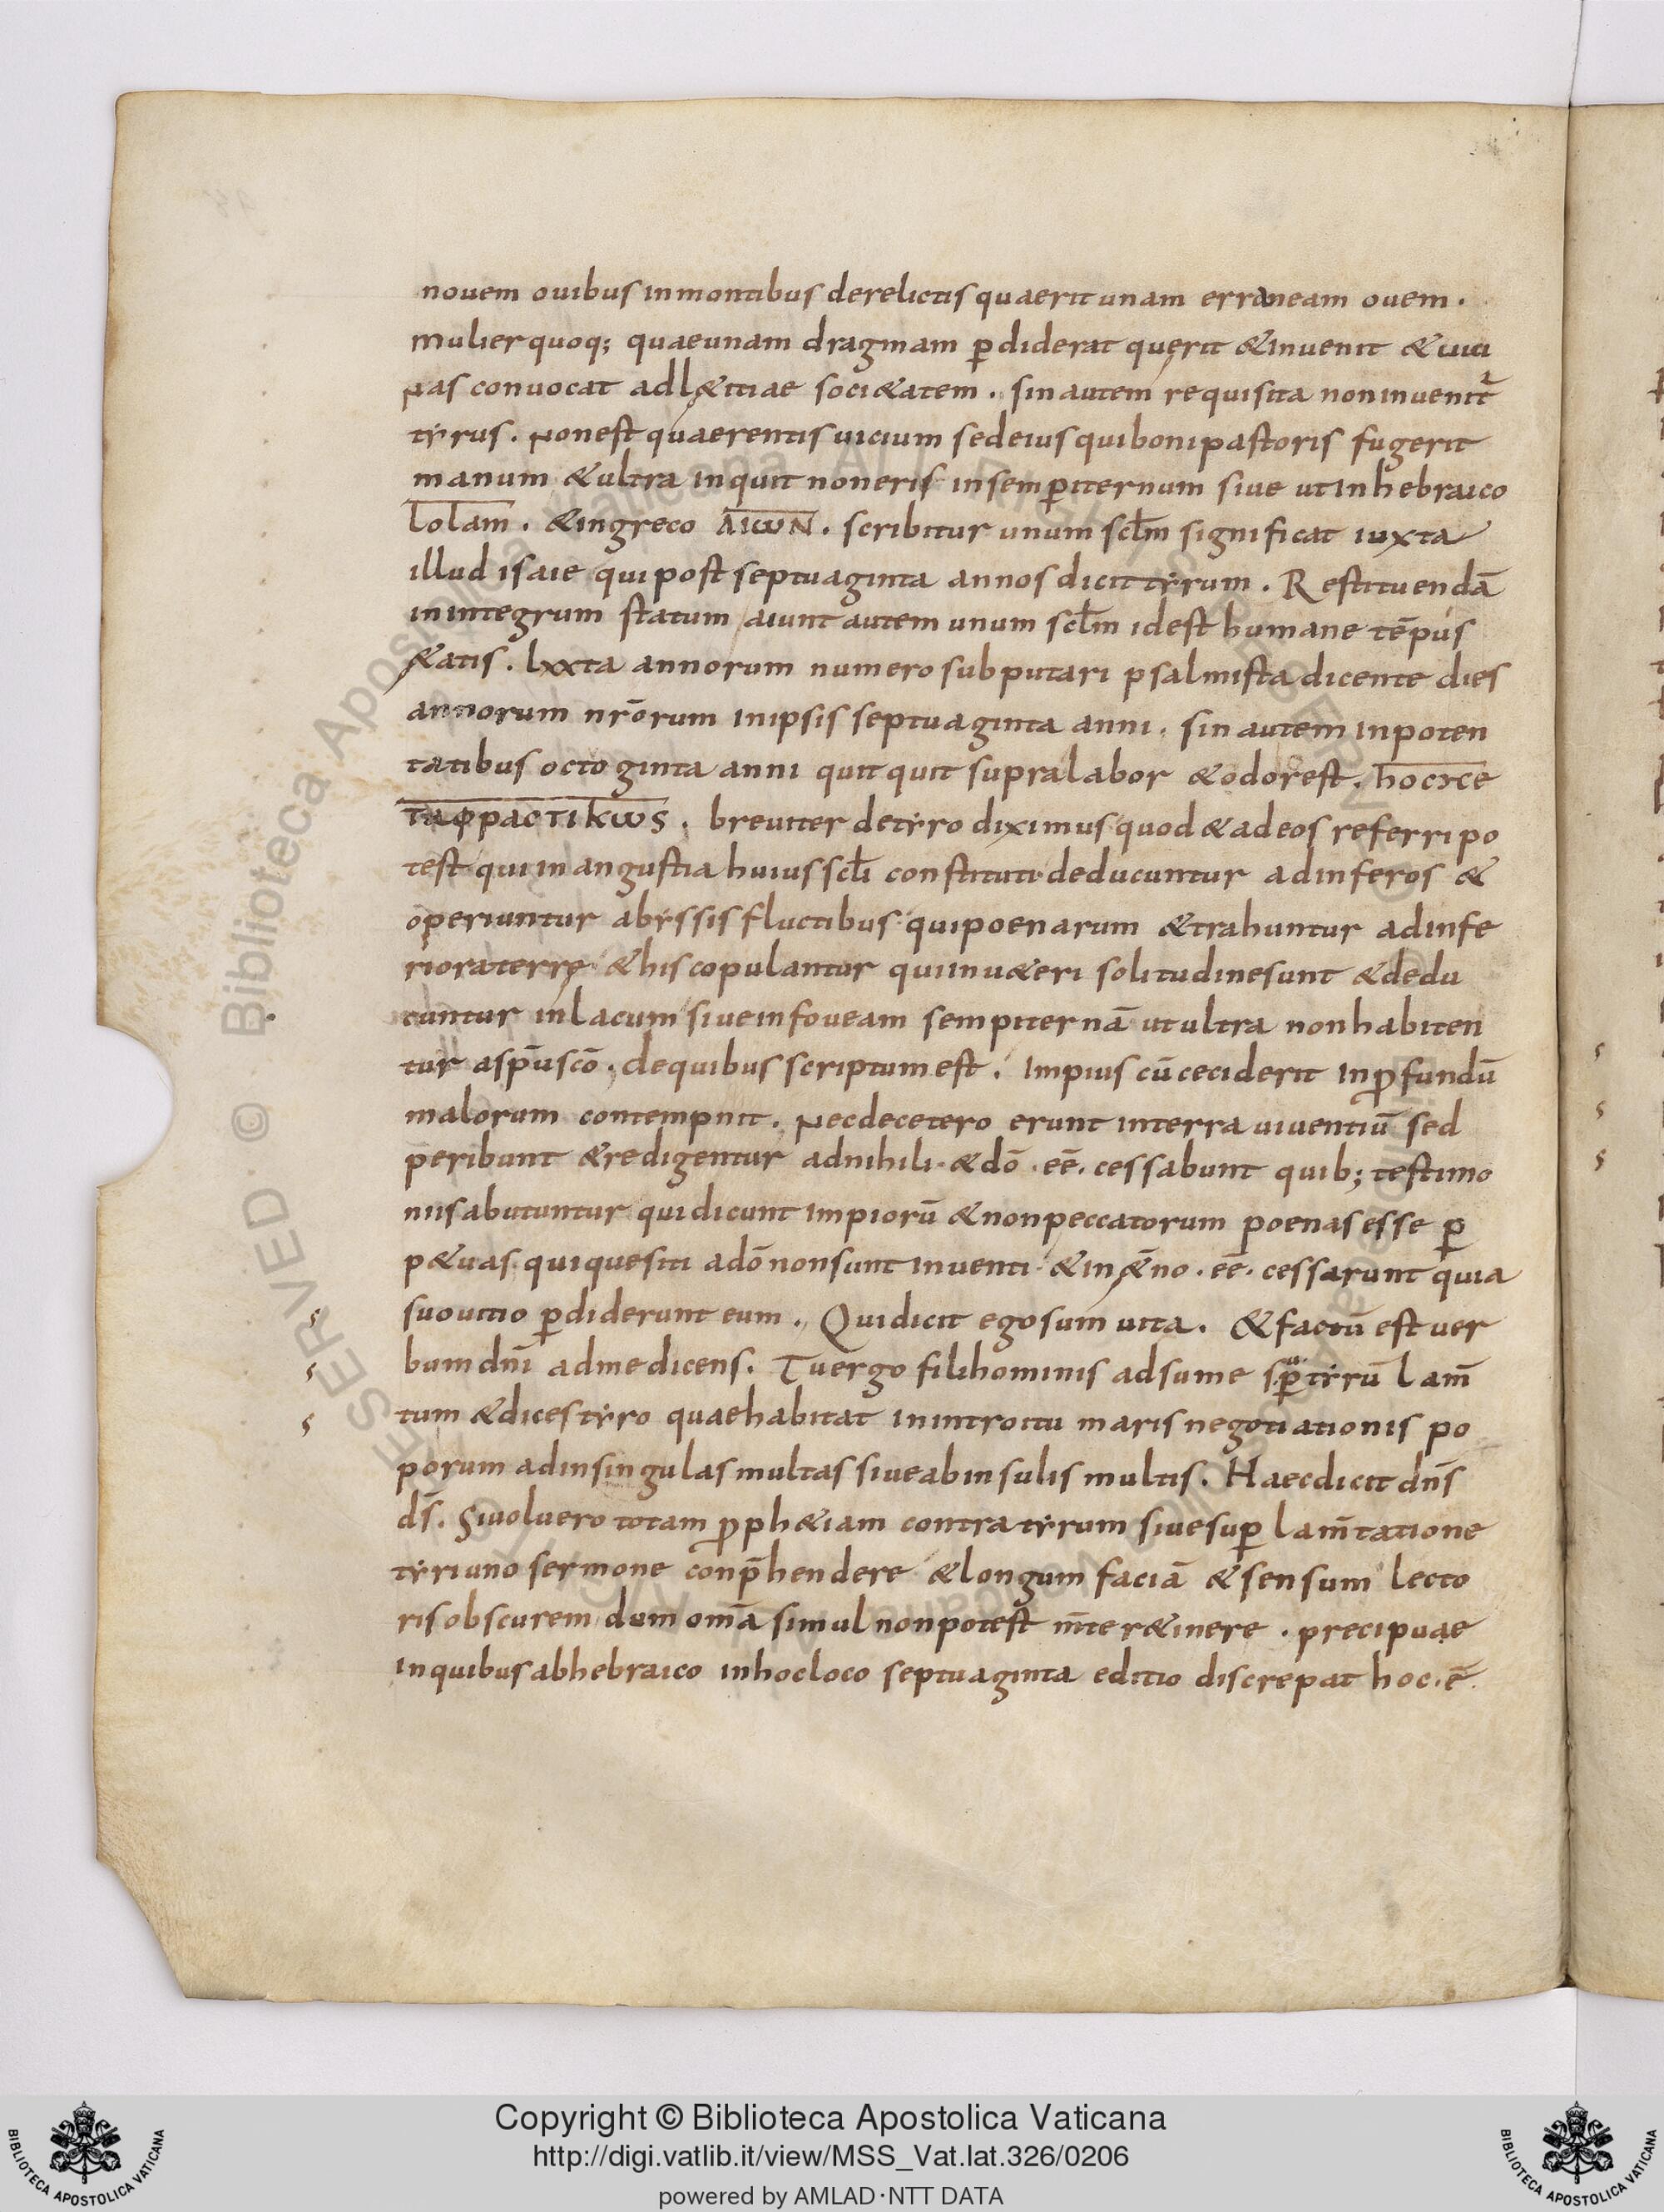 nouem ouibus inmontibus derelictis quaerit unam erraneam ouem.
mulier quoq; quaeunam dragmam ꝑdiderat quęrit &inuenit &uici
nas conuocat adlętitiae soci&atem. sin autem requisita noninuenit᷑
tyrus. nonest quaerentis uicium sedeius quiboni pastoris fugerit
manum &ultra inquit noneris insemꝑiternum siue utinhebraico
lolam. &ingreco ΑΙωΝ. scribitur unum scl̄m significat iuxta
illud isaie qui post septuaginta annos dicit tyrum. Restituendā
inintegrum statum aiunt autem unum scl̄m idest humane tēpus
ę&atis. lxxta annorum numero subputari psalmista dicente dies
annorum nr̄orum inipsis septuaginta anni. sin autem inpoten
tatibus octoginta anni quit quit supra labor &odorest. hocιϲe
ταφραϲτικωs. breuiter detyro diximus quod &adeos referri po
test qui in angustia huius scl̄i constituti deducuntur adinferos &
operiuntur abyssis fluctibus qui poenarum &trahuntur adinfe
riora terrę &his copulantur qui inu&eri solitudine sunt &dedu
cuntur inlacum siue infoueam sempiternā ut ultra non habiten
tur asp̄uscō. dequibus scriptum est. Impius cū ceciderit inꝓfundū
malorum contempnit. nec decetero erunt interra uiuentiū sed
peribunt &redigentur adnihili &dō. eē. cessabunt quib; testimo
niis abutuntur qui dicunt impiorū &nonpeccatorum poenas esse ꝑ
p&uas qui quesiti adō non sunt inuenti &in ę&̄no. eē. cessarunt quia
suo uitio ꝑdiderunt eum. Qui dicit ego sum uita. &factū est uer
bum dn̄i adme dicens. Tu ergo fili hominis adsume suꝑ tyrū lam̄
tum &dices tyro quae habitat in introitu maris negotiationis po
porum adinsingulas multas siue abinsulis multis. Haec dicit dn̄s
ds̄. Si uoluero totam ꝓph&iam contra tyrum siue suꝑ lam̄tatione
tyri uno sermone conp̄hendere &longum faciā &sensum lecto
ris obscurem dum om̄a simul non potest m̄te r&inere. precipuae
in quibus abhebraico inhocloco septuaginta editio discrepat hoc. ē.
Copyright © Biblioteca Apostolica Vaticana
http://digi.vatlib.it/view/MSS_Vat.lat.326/0206
powered by AMLAD·NTT DATA